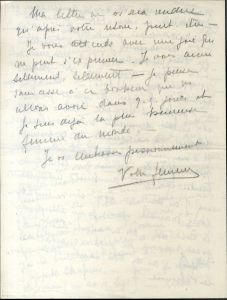 Ma lettre ne vs sera rendue
qu'après votre retour, peut être –
Je vous attends avec une joie qui
ne peut s'exprimer. Je vous aime
tellement, tellement – je pense
sans cesse à ce bonheur que ns
allons avoir dans q.q. jours et
je suis déjà la plus heureuse
femme du monde. –
Je vs embrasse passionnément
Votre femme